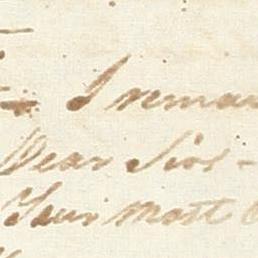 I remain
Dear Sir -
Your most